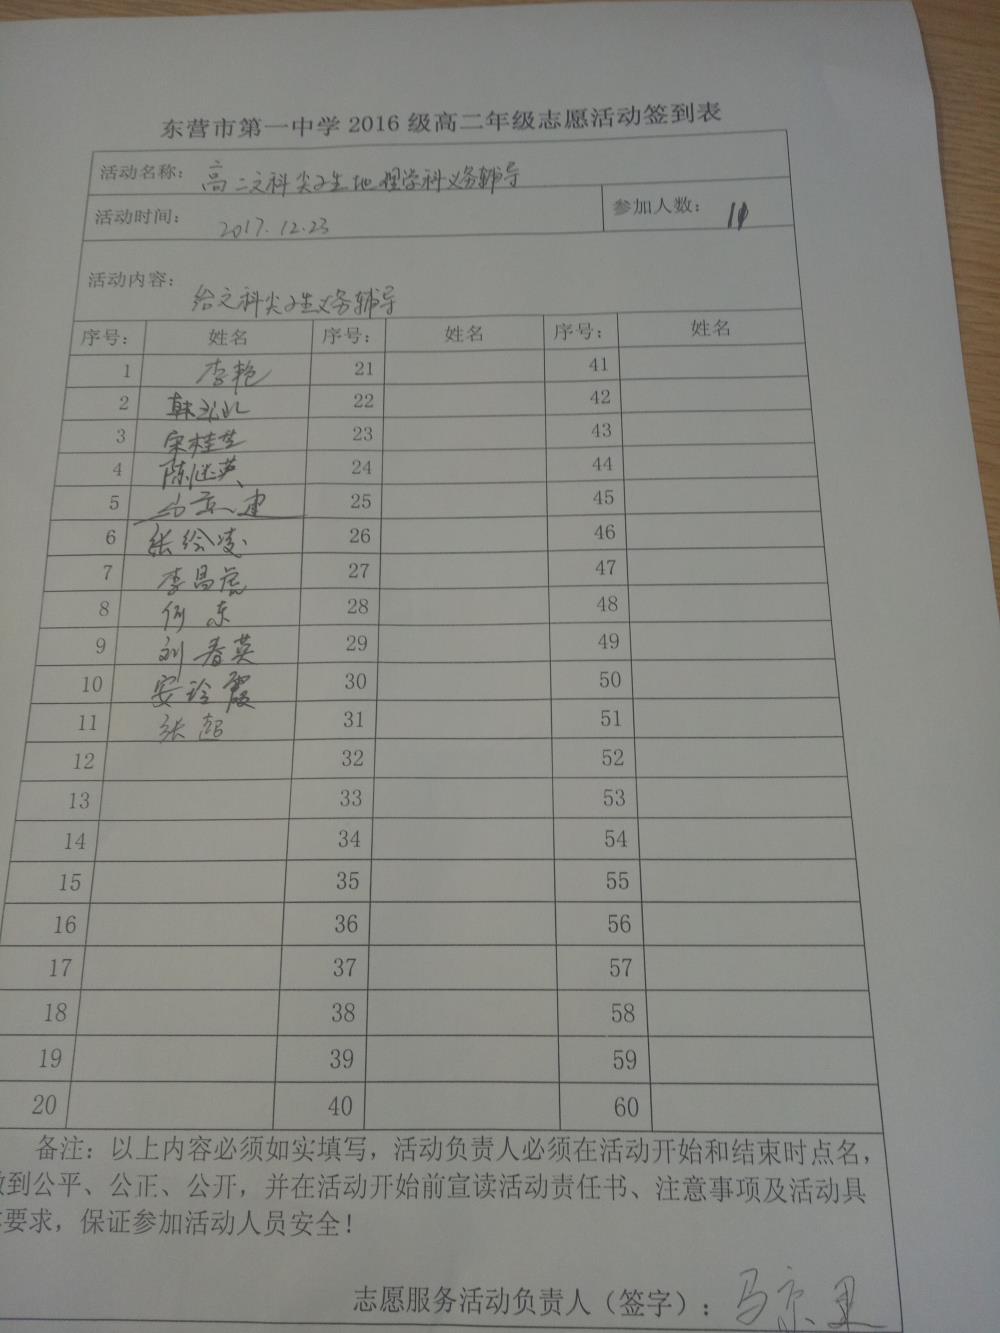 东营市第一中学 2016 级高二年级志愿活动签到表
活动名称： 高二文科尖子生地理学科义务辅导
活动时间： 2017.12.23 参加人数： 11
活动内容： 给文科尖子生义务辅导
序号： 姓名 序号： 姓名 序号： 姓名
1 李艳 21 41
2 韩 22 42
3 宋桂芝 23 43
4 陈继英 24 44
5 25 45
6 张绘凌 26 46
7 李昌虎 27 47
8 何东 28 48
9 刘春英 29 49
10 安玲霞 30 50
11 张超 31 51
12 32 52
13 33 53
14 34 54
15 35 55
16 36 56
17 37 57
18 38 58
19 39 59
20 40 60
备注：以上内容必须如实填写，活动负责人必须在活动开始和结束时点名，
做到公平、公正、公开，并在活动开始前宣读活动责任书、注意事项及活动具
体要求，保证参加活动人员安全！
志愿服务活动负责人（签字）： 马